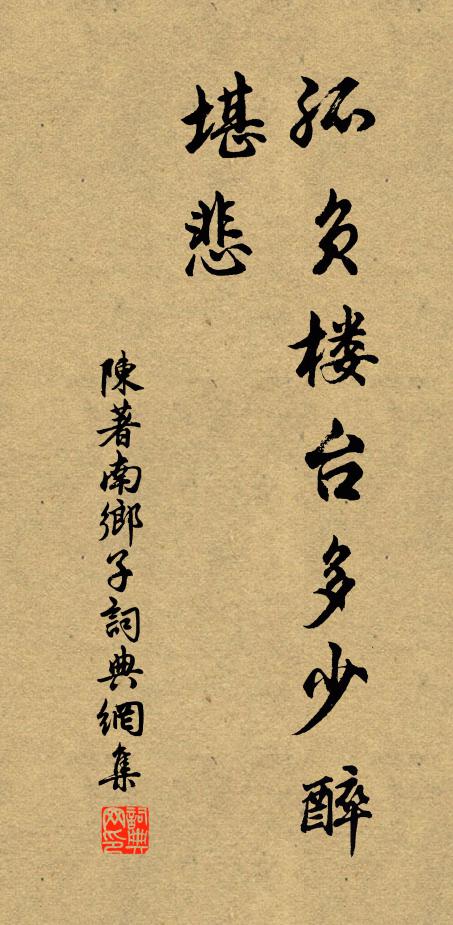 孤负楼台多少醉
堪悲
陳著南鄉子詞典網集
詞典网印